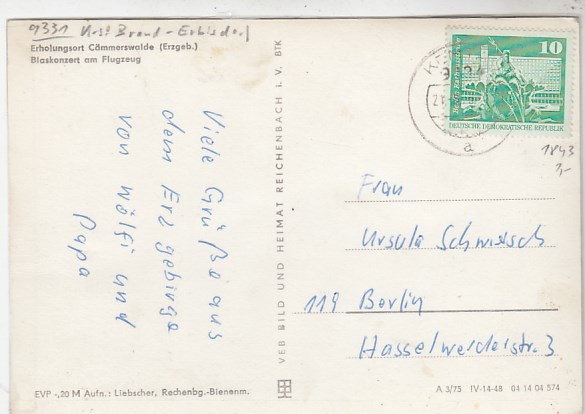 9331 Krs. Brand-Erbisdorf
Erholungsort Cämmerswalde (Erzgeb.)
Blaskonzert am Flugzeug
Viele Grüße aus
dem Erzgebirge
von Wölfi und
Papa
VEB BILD UND HEIMAT REICHENBACH I. V. BTK
10
DEUTSCHE DEMOKRATISCHE REPUBLIK
a
1843
3,-
Frau
Ursula
119 Berlin
Hasselwerderstr. 3
EVP -,20 M Aufn.: Liebscher, Rechenbg.-Bienenm.
A 3/75 IV-14-48 04 14 04 574